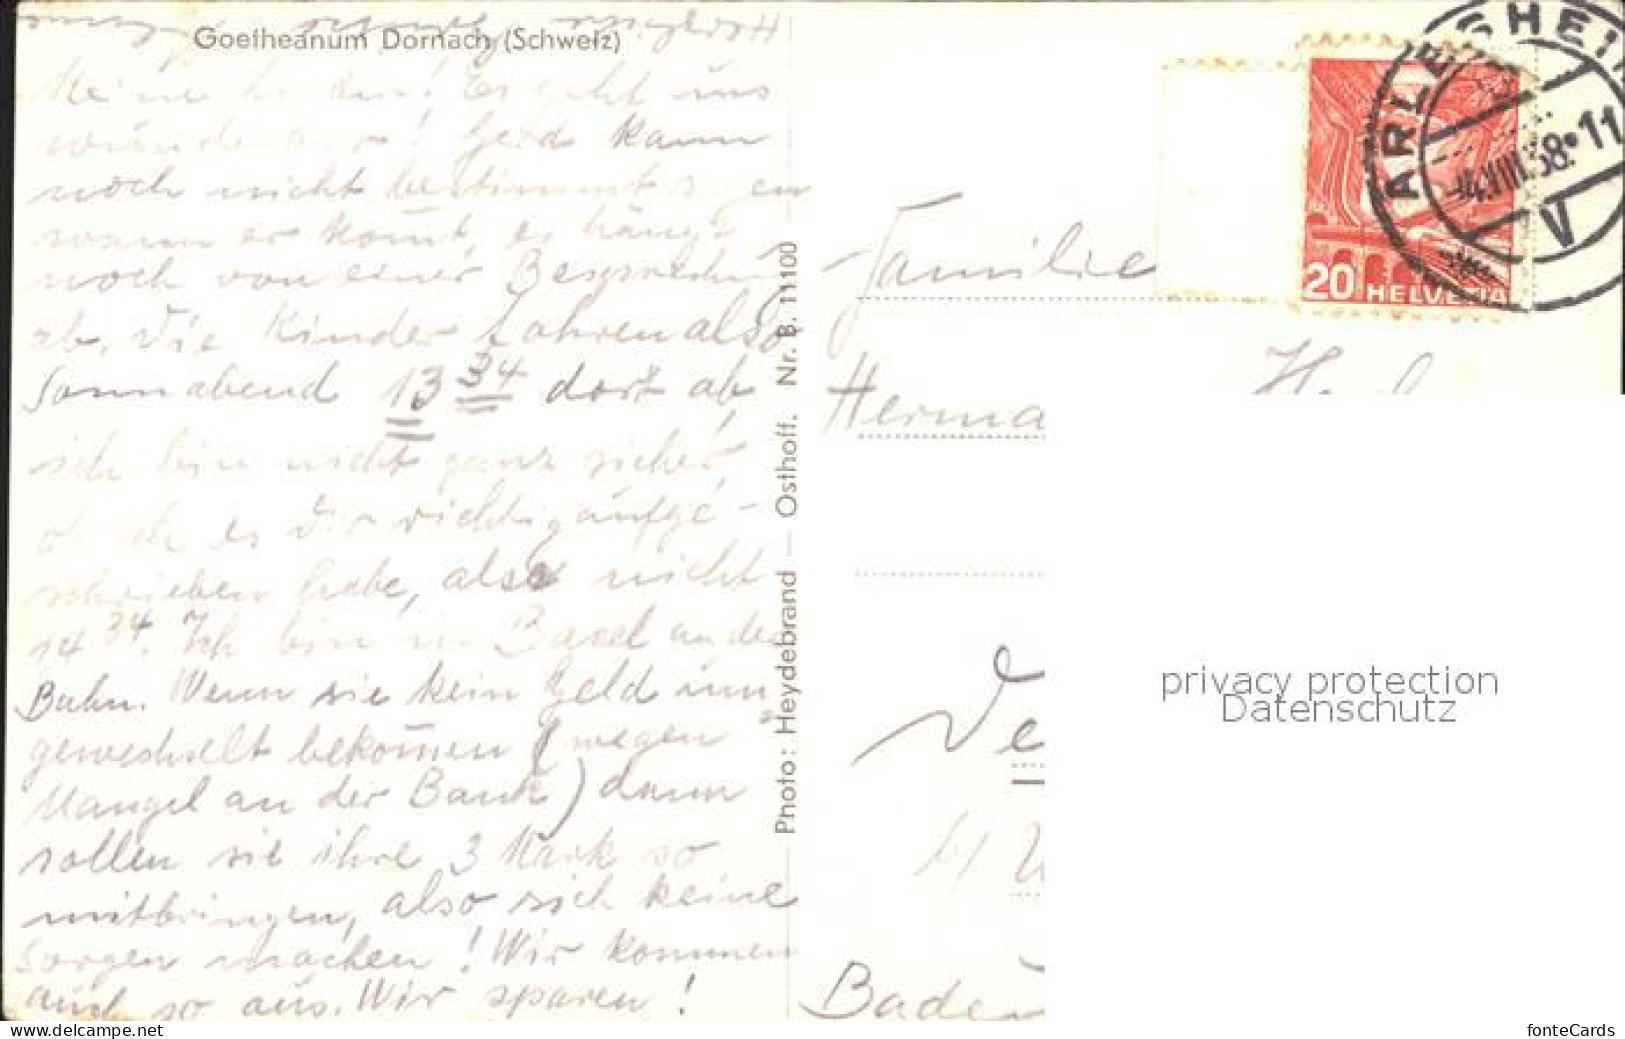 Goetheanum Dornach (Schweiz)
Meine Lieben! Es geht uns
wunderbar! Geld kann
noch nicht bestimmt sagen
wann er kommt, es hängt
noch von einer Besprechung
ab. Die Kinder fahren also
Sonnabend 13 34 dort ab,
ich bin nicht ganz sicher,
ob ich es Dir richtig aufge-
schrieben habe, also nicht
14 34. Ich bin in Basel an der
Bahn. Wenn sie kein Geld um-
gewechselt bekom̄en (wegen
Mangel an der Bank) dann
sollen sie ihre 3 Mark so
mitbringen, also sich keine
Sorgen machen! Wir kommen
auch so aus. Wir sparen!
Photo: Heydebrand — Osthoff. Nr. B. 11100
Familie
Herma
Baden
ARLESHEIM
VIII.38.11
V
20 HELVETIA
privacy protection
Datenschutz
www.delcampe.net
fonteCards